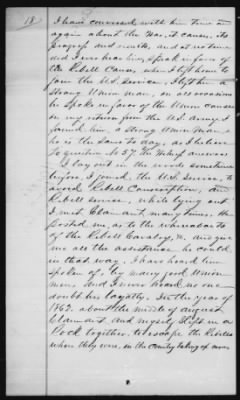 18
I have conversed with him time and
again about the War, it causes, its
progress and results, and at no time
did I ever hear him, speak in favor of
the Rebell Cause, when I left home to
join the U.S. Service, I left him a
strong Union man, on all occasions
he spoke in favor of the Union cause
on my return from the U.S. Army I
found him, a strong Union man &
he is the same to day, as I believe
To question No 37 The Witness answers
I lay out in the woods sometime
before, I joined, the U.S. Service, to
avoid Rebell Conscription, and
Rebell service, while lying out
I met Claimant many times. He
posted me, as to the whereabouts
of the Rebell Cavalry, &c, and gave
me all the assistance he could
in that way. I have heard him
spoken of, by many good Union
men, and I never heard no one
doubt his loyalty. In the year of
1862, about the middle of August
Claimant and myself slept in a
Rock together, to escape the Rebells
when they were, in the County taking up men